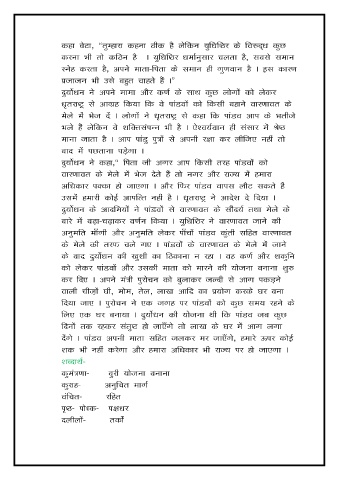 कहा बेटा, "तुम्हारा कहना ठीक है लेकिन युधिष्ठिर के विरूद्ध कुछ
करना भी तो कठिन है । युधिष्ठिर धर्मानुसार चलता है, सबसे समान
स्नेह करता है, अपने माता-पिता के समान ही गुणवान है । इस कारण
प्रजाजन भी उसे बहुत चाहते हैं ।"
दुर्योधन ने अपने मामा और कर्ण के साथ कुछ लोगों को लेकर
धृतराष्ट्र से आग्रह किया कि वे पांडवों को किसी बहाने वारणावत के
मेले में भेज दें । लोगों ने धृतराष्ट्र से कहा कि पांडव आप के भतीजे
भले हैं लेकिन वे शक्तिसंपन्न भी हैं । ऐश्वर्यवान ही संसार में श्रेष्ठ
माना जाता है । आप पांडु पुत्रों से अपनी रक्षा कर लीजिए नहीं तो
बाद में पछताना पड़ेगा ।
दुर्योधन ने कहा," पिता जी अगर आप किसी तरह पांडवों को
वारणावत के मेले में भेज देते हैं तो नगर और राज्य में हमारा
अधिकार पक्का हो जाएगा । और फिर पांडव वापस लौट सकते हैं
उसमें हमारी कोई आपत्ति नहीं है । धृतराष्ट्र ने आदेश दे दिया ।
दुर्योधन के आदमियों ने पांडवों से वारणावत के सौंदर्य तथा मेले के
बारे में बढ़ा-चढ़ाकर वर्णन किया । युधिष्ठिर ने वारणावत जाने की
अनुमति माँगी और अनुमति लेकर पाँचों पांडव कुंती सहित वारणावत
के मेले की तरफ चले गए । पांडवों के वारणावत के मेले में जाने
के बाद दुर्योधन की खुशी का ठिकाना न रहा । वह कर्ण और शकुनि
को लेकर पांडवों और उसकी माता को मारने की योजना बनाना शुरु
कर दिए । अपने मंत्री पुरोचन को बुलाकर जल्दी से आग पकड़ने
वाली चीज़ों घी, मोम, तेल, लाख आदि का प्रयोग करके घर बना
दिया जाए । पुरोचन ने एक जगह पर पांडवों को कुछ समय रहने के
लिए एक घर बनाया । दुर्योधन की योजना थी कि पांडव जब कुछ
दिनों तक रहकर संतुष्ट हो जाएँगे तो लाख के घर में आग लगा
देंगे । पांडव अपनी माता सहित जलकर मर जाएँगे, हमारे ऊपर कोई
शक भी नहीं करेगा और हमारा अधिकार भी राज्य पर हो जाएगा ।
शब्दार्थ-
कुमंत्रणा- बुरी योजना बनाना
कुराह- अनुचित मार्ग
वंचित- रहित
पृष्ठ- पोषक- पक्षधर
दलीलों- तर्कों